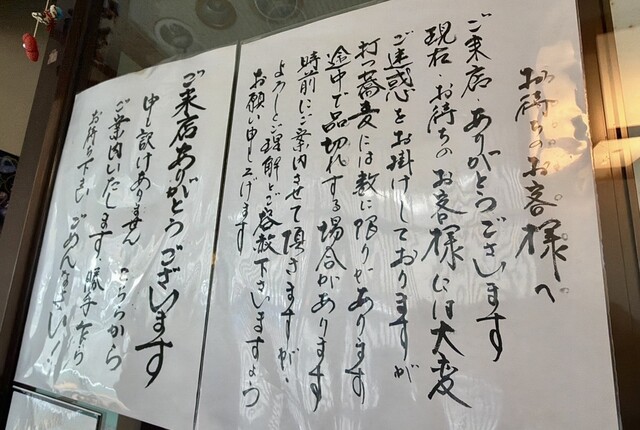 お待ちのお客様へ
ご来店・ありがとうございます
現在・お待ちのお客様には大変
ご迷惑をお掛けしておりますが
打つ蕎麦には数に限りがあります
途中で品切れする場合があります
時前にご案内させて頂きますが、
よろしくご理解とご容赦下さいますよう
お願い申し上げます
ご来店ありがとうございます
申し訳けありません こちらから
ご案内いたします 勝手乍ら
お待ち下さい ごめんなさい!